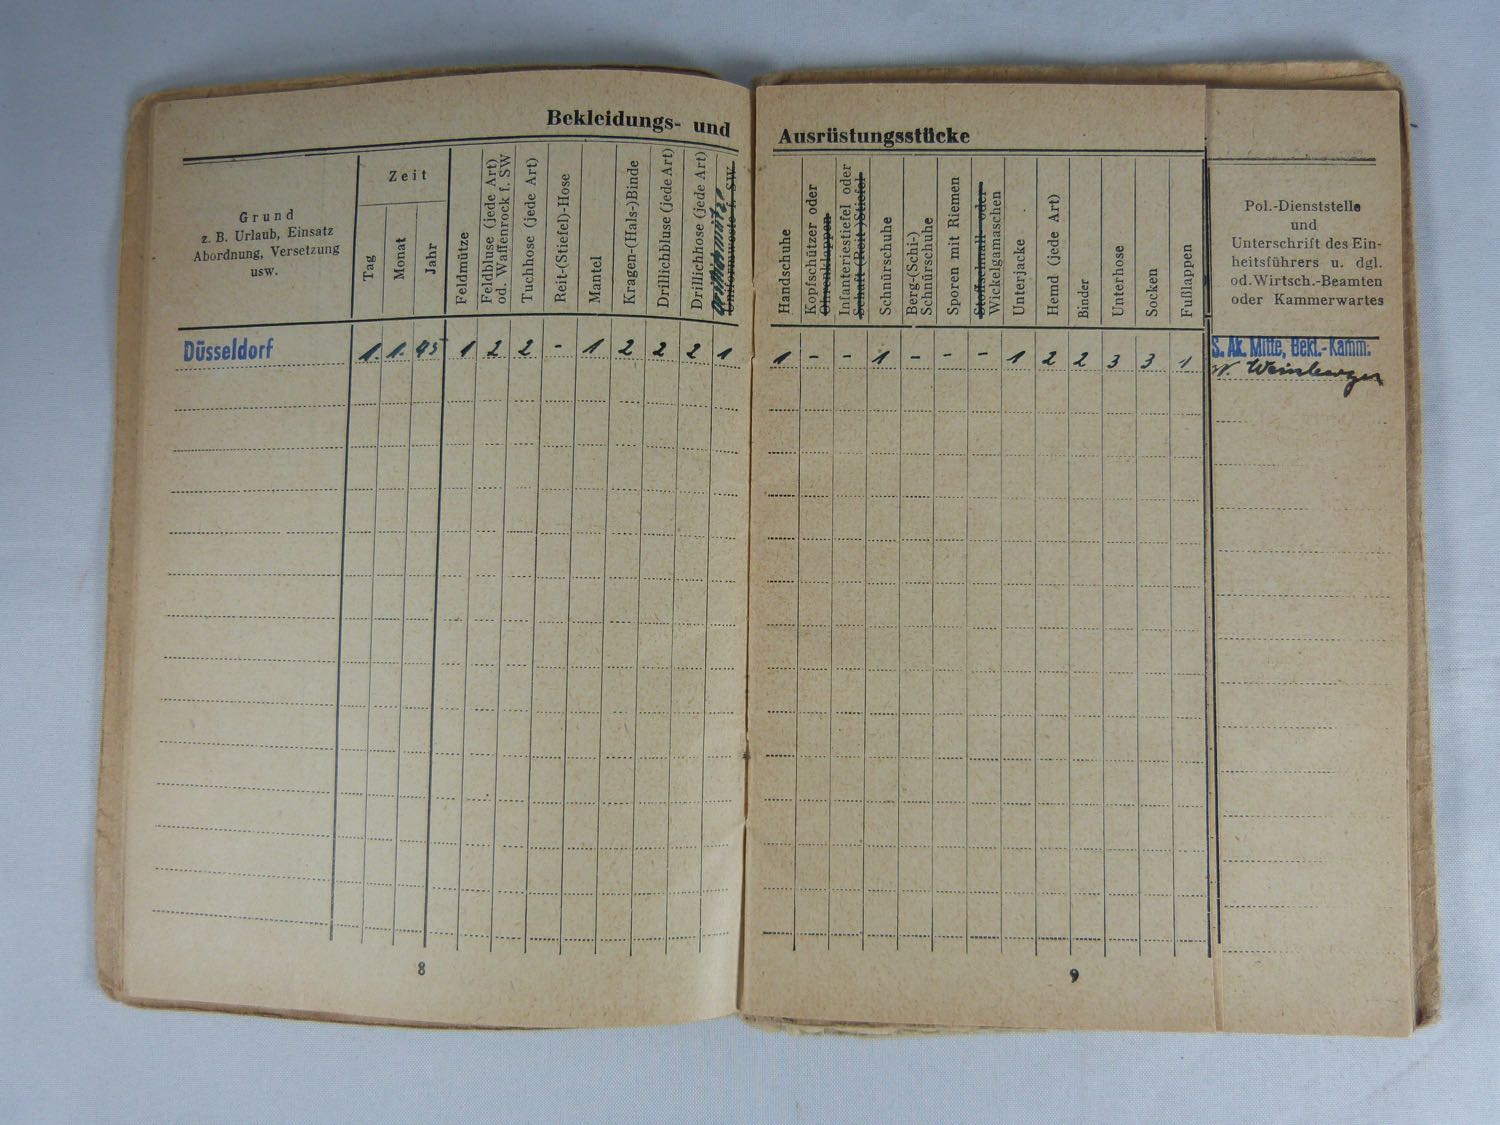 Bekleidungs- und
Grund
z. B. Urlaub, Einsatz
Abordnung, Versetzung
usw.
Zeit
Tag
Monat
Jahr
Feldmütze
Feldbluse (jede Art)
od. Waffenrock f. SW
Tuchhose (jede Art)
Reit-(Stiefel)-Hose
Mantel
Kragen-(Hals-)Binde
Drillichbluse (jede Art)
Drillichhose (jede Art)
Uniformweste f. SW
Düsseldorf 1. 1. 45 1 2 2 - 1 2 2 2 1
8
Ausrüstungsstücke
Handschuhe
Kopfschützer oder
Ohrenklappen
Infanteriestiefel oder
Schaft-(Reit-)Stiefel
Schnürschuhe
Berg-(Schi-)
Schnürschuhe
Sporen mit Riemen
Stoffschnall- oder
Wickelgamaschen
Unterjacke
Hemd (jede Art)
Binder
Unterhose
Socken
Fußlappen
Pol.-Dienststelle
und
Unterschrift des Ein-
heitsführers u. dgl.
od. Wirtsch.-Beamten
oder Kammerwartes
1 - - 1 - - - 1 2 2 3 3 1 S. Ak. Mitte, Bekl.-Kamm.
W. Weinberger
9